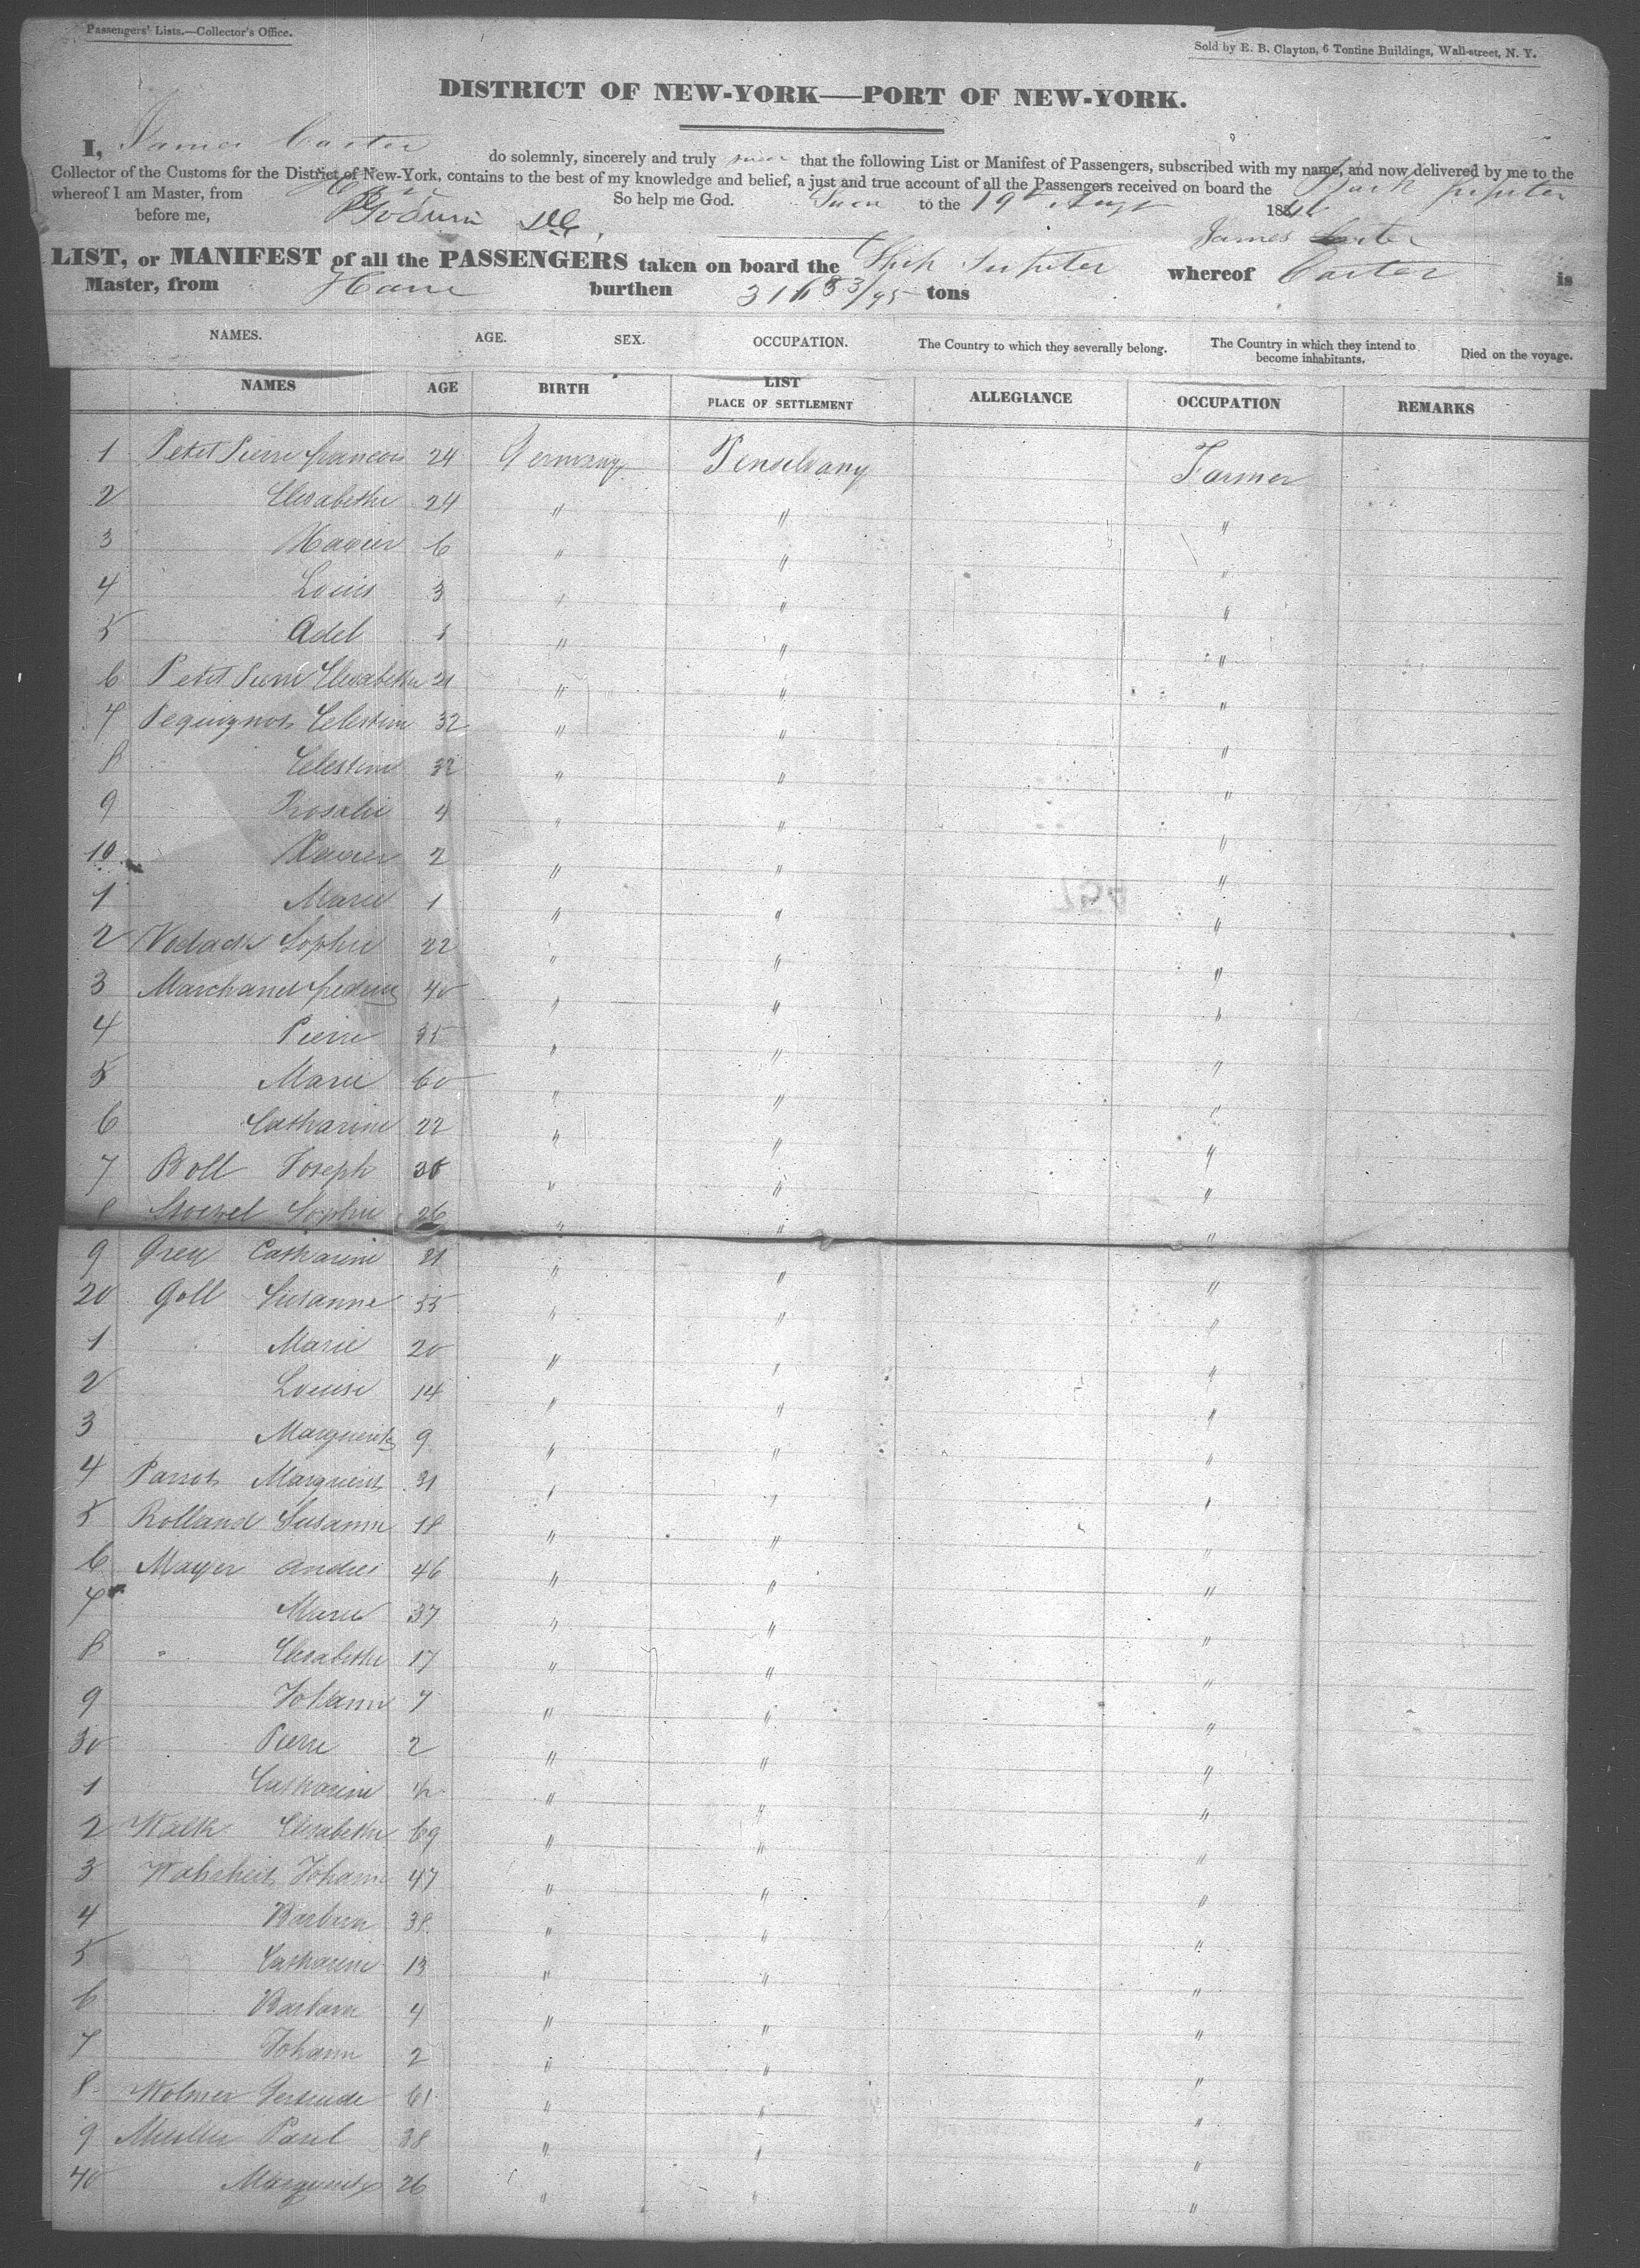 Passengers' Lists.—Collector's Office.
Sold by E. B. Clayton, 6 Tontine Buildings, Wall-street, N. Y.
DISTRICT OF NEW-YORK—PORT OF NEW-YORK.
I, James Carter do solemnly, sincerely and truly swear that the following List or Manifest of Passengers, subscribed with my name, and now delivered by me to the
Collector of the Customs for the District of New-York, contains to the best of my knowledge and belief, a just and true account of all the Passengers received on board the Bark Jupiter
whereof I am Master, from So help me God. to the 19 Augt 18
before me,
James Carter
LIST, or MANIFEST of all the PASSENGERS taken on board the Ship Jupiter whereof Carter is
Master, from Havre burthen 316 83/95 tons
NAMES. AGE. SEX. OCCUPATION. The Country to which they severally belong. The Country in which they intend to become inhabitants. Died on the voyage.
NAMES AGE BIRTH LIST PLACE OF SETTLEMENT ALLEGIANCE OCCUPATION REMARKS
1 Petit Pierre francois 24 Germany Penselvany Farmer
2 Elisabethe 24 " " "
3 Xavier 6 " " "
4 Louis 3 " " "
5 Adel " " "
6 Petit Pierre Elisabethe 21 " " "
7 Pequignot Celestin 32 " " "
8 Celestine 32 " " "
9 Rosalie 4 " " "
10 Xavier 2 " " "
1 Marie 1 " " "
2 Sophie 22 " " "
3 Marchand 40 " " "
4 Pierre 35 " " "
5 Marie 60 " " "
6 Catharine 22 " " "
7 Boll Joseph 30 " " "
8 Sophie 26 " " "
9 Catharine 21 " " "
20 Goll Susanne 55 " " "
1 Marie 20 " " "
2 Louise 14 " " "
3 Marguerite 9 " " "
4 Parrot Marguerit 31 " " "
5 Rolland Susanne 18 " " "
6 Mayer Andres 46 " " "
7 Marie 37 " " "
8 " Elisabethe 17 " " "
9 Johann 7 " " "
30 Pierre 2 " " "
1 Catharine 1/2 " " "
2 Walk Elisabethe 69 " " "
3 Wahrheit Johann 47 " " "
4 Barbara 38 " " "
5 Catharine 13 " " "
6 Barbara 4 " " "
7 Johann 2 " " "
8 Wolmer Gertrude 61 " " "
9 Muller Paul 38 " " "
40 Marguerite 26 " " "